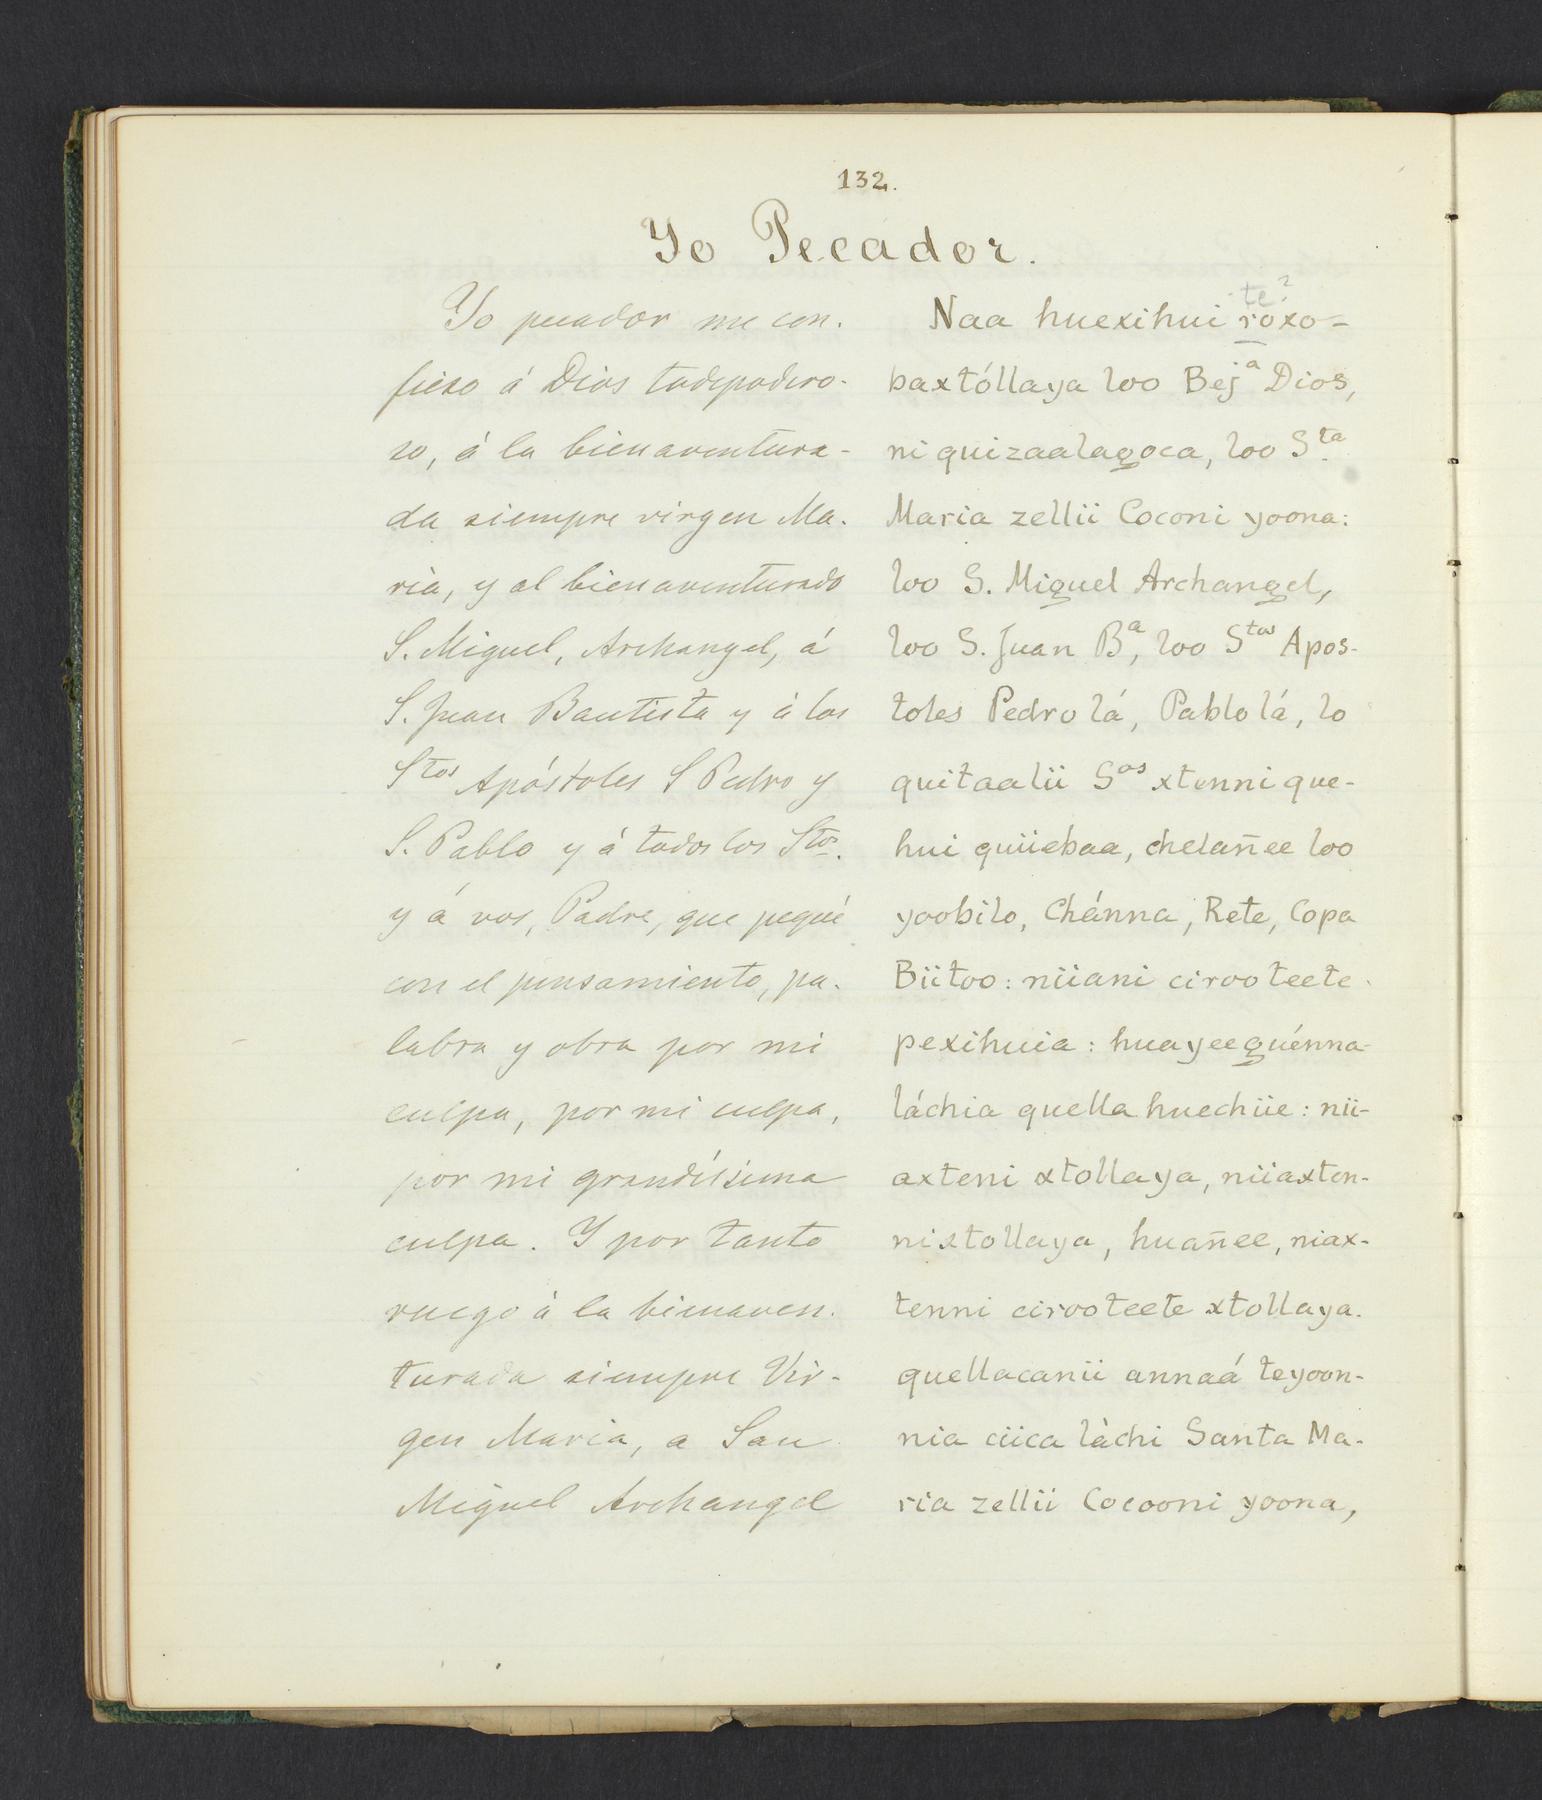 132.
Yo Pecador.
Yo pecador me con-
fieso á Dios todopodero-
so, á la bienaventura-
da siempre virgen Ma-
ria, y al bienaventurado
S. Miguel, Archangel, á
S. Juan Bautista y á los
Stos Apóstoles S Pedro y
S. Pablo y á todos los Stos.
y á vos, Padre, que pequé
con el pensamiento, pa-
labra y obra por mi
culpa, por mi culpa,
por mi grandísima
culpa. Y por tanto
ruego á la bienaven-
turada siempre Vir-
gen Maria, a San
Miguel Archangel
te?
Naa huexihui roxo-
baxtóllaya loo Beja Dios,
ni quizaalagoca, loo Sta
Maria zellii Coconi yoona:
loo S. Miguel Archangel,
loo S. Juan Ba, loo Stos Apos-
toles Pedro lá, Pablo lá, lo
quitaalii Sos xtenni que-
hui quiiebaa, chelañee loo
yoobilo, Chánna, Rete, Copa
Biitoo: niiani ciroo teete
pexihuia: huayeeguénna-
láchia quella huechiie: nii-
axteni xtollaya, niiaxten-
nixtollaya, huañee, niax-
tenni ciroo teete xtollaya.
quellacanii annaá teyoon-
nia ciica làchi Santa Ma-
ria zellii Cocooni yoona,